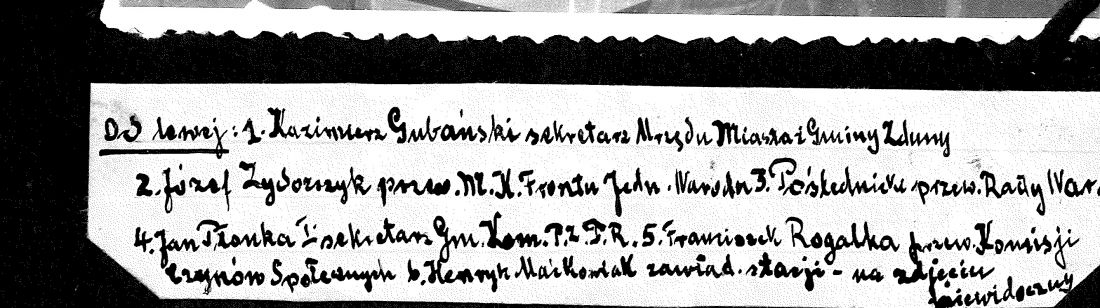 Od lewej: 1. Kazimierz Gubański sekretarz Urzędu Miasta i Gminy Zduny
2. Józef Zydorczyk przew. M.K. Frontu Jedn. Narodu 3. Pośrednicki przew. Rady Nar.
4. Jan Płonka I sekretarz Gm. Kom. P.Z.P.R. 5. Franciszek Rogalka przew. Komisji
Czynów Społecznych 6. Henryk Maćkowiak zawiad. stacji - na zdjęciu
niewidoczny